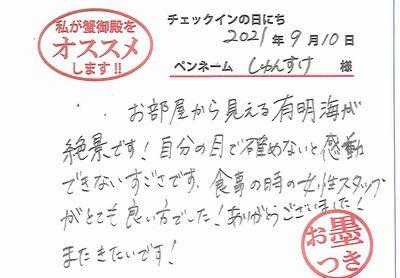 私が蟹御殿を
オススメ
します!!
チェックインの日にち
2021年9月10日
ペンネーム しゅんすけ 様
お部屋から見える有明海が
絶景です！自分の目で確めないと感動
できないすごさです。食事の時の女性スタッフ
がとても良い方でした！ありがとうございました！
またきたいです！
お墨
つき